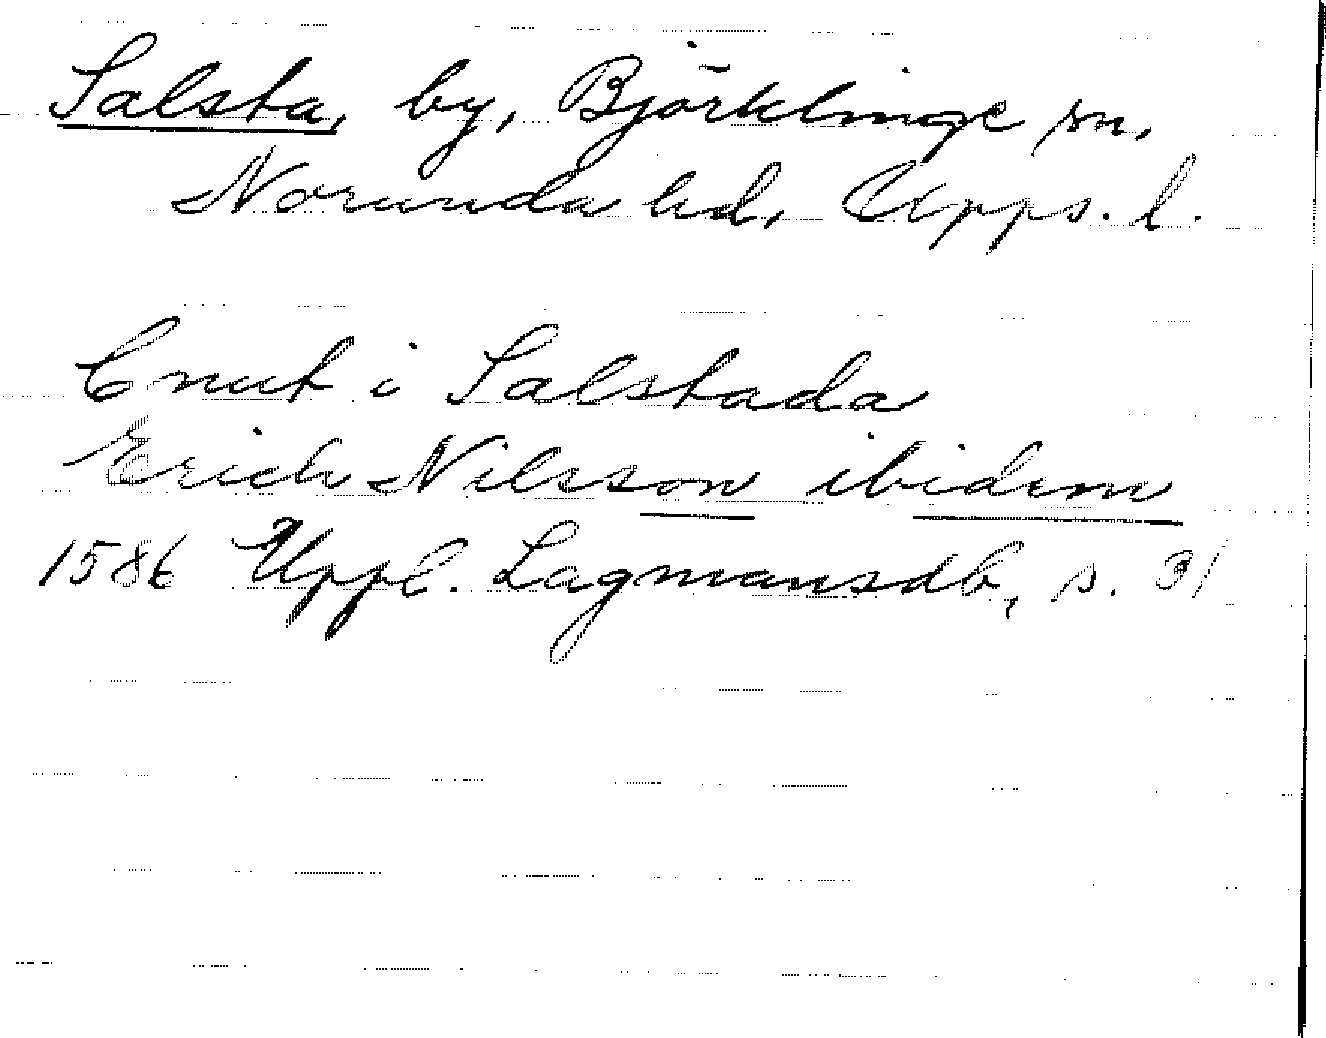 Salsta, by, Björklinge sn,
Norunda hd, Upps. l.
Cnut i Salstada
Erich Nilsson ibidem
1586 Uppl. Lagmansdb, s. 31